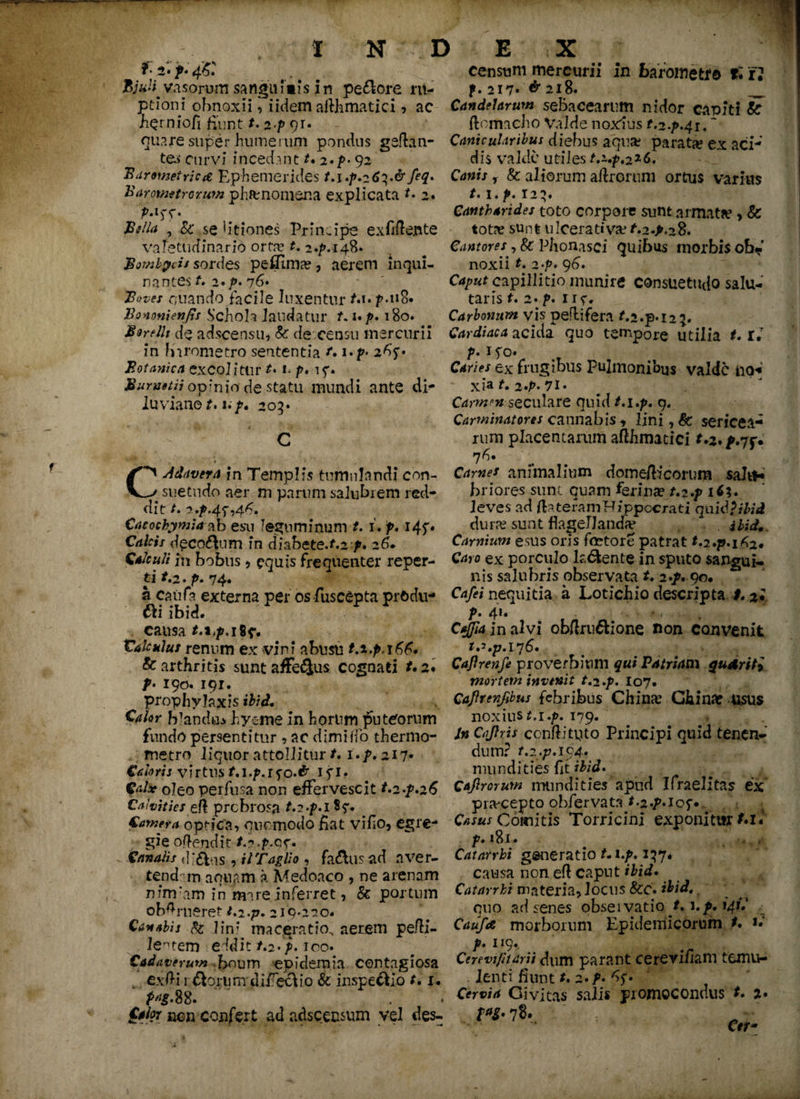 INDEX
t. 2. p. 46.
Ejuli vasorum sanguinis in pectore ru-
ptioni obnoxii, iidem asthmatici, ac
herniosi fiunt t. 2.p 91.
quare super humerum pondus gestan-
tes curvi incedant t. 2. p. 92
Barometricæ Ephemerides t.1.p.263.& seq.
Barometrorum phænomena explicata t. 2.
p.155.
Bella, & seditiones Principe existente
valetudinario ortæ t. 2.p.148.
Bombycis sordes pessimæ, aerem inqui-
nantes t. 2. p. 76.
Boves quando facile luxentur t.1. p.118.
Bononiensis Schola laudatur t. 1. p. 180.
Borelli de adscensu, & de censu mercurii
in barometro sententia t. 1. p. 265.
Botanica excolitur t. 1. p. 15.
Burnetii opinio de statu mundi ante di-
luviano t. 1. p. 203.
C
CAdavera in Templis tumulandi con-
suetudo aerem parum salubrem red-
dit t. 2.p.45,46.
Cacochymia ab esu leguminum t. 1. p. 145.
Calcis decoctum in diabete.t.2.p. 26.
Calculi in bobus, equis frequenter reper-
ti t.2. p. 74.
à causa externa per os suscepta produ-
cti ibid.
causa t.2.p.185.
Calculus renum ex vini abusu t.2.p.166.
& arthritis sunt affectus cognati t. 2.
p. 190. 191.
prophylaxis ibid.
Calor blandus hyeme in hortum puteorum
fundo persentitur, ac dimisso thermo-
metro liquor attollitur t. 1. p. 217.
Caloris virtus t.1.p.150.& 151.
Calx oleo perfusa non effervescit t.2.p.26
Calvities est probrosa t.2.p.185.
Camera optica, quomodo fiat visio, egre-
gie ostendit t.2.p.95.
Canalis dictus, il Taglio, factus ad aver-
tendam aquam à Medoaco, ne arenam
nimiam in mare inferret, & portum
obstrueret t.2.p. 219.220.
Canabis & lini maceratio, aerem pesti-
lentem eddit t.2. p. 100.
Cadaverum boum epidemia contagiosa
extinctorum dissectio & inspectio t. 1.
pag.88.
Calor non confert ad adscensum vel des-
censum mercurii in barometro t. 1.
p. 217. & 218.
Candelarum sebacearum nidor capiti &
stomacho valde noxius t.2.p.41.
Canicularibus diebus aquæ paratæ ex aci-
dis valdè utiles t.2.p.226.
Canis, & aliorum astrorum ortus varius
t. 1. p. 123.
Cantharides toto corpore sunt armatæ, &
totæ sunt ulcerativæ t.2.p.28.
Cantores, & Phonasci quibus morbis ob-
noxii t. 2.p. 96.
Caput capillitio munire consuetudo salu-
taris t. 2. p. 115.
Carbonum vis pestifera t.2.p.123.
Cardiaca acida quo tempore utilia t. 1.
p. 150.
Caries ex frugibus Pulmonibus valdè no-
xia t. 2.p. 71.
Carmen seculare quid t.1.p. 9.
Carminatores cannabis, lini, & sericea-
rum placentarum asthmatici t.2. p.75.
76.
Carnes animalium domesticorum salu-
briores sunt quam ferinæ t.2.p 163.
leves ad stateram Hippocrati quid? ibid
duræ sunt flagellandæ ibid.
Carnium esus oris fœtorē patrat t.2.p.162.
Caro ex porculo lactente in sputo sangui-
nis salubris observata t. 2.p. 90.
Cafei nequitia à Lotichio descripta t. 2.
p. 41.
Cassia in alvi obstructione non convenit
t.2.p.176.
Castrense proverbium qui Patriam quærit,
mortem invenit t.2.p. 107.
Castrensibus febribus Chinæ Chinæ usus
noxius t.1.p. 179.
In Castris constituto Principi quid tenen-
dum? t.2.p.194.
mundities sit ibid.
Castrorum mundities apud Israelitas ex
præcepto observata t.2.p.105.
Casus Comitis Torricini exponitur t.1.
p. 181.
Catarrhi generatio t. 1.p. 137.
causa non est caput ibid.
Catarrhi materia, locus &c. ibid.
quo ad senes observatio t. 1. p. 141.
Causæ morborum Epidemicorum t. 1.
p. 119.
Cerevisiarii dum parant cerevisiam temu-
lenti fiunt t. 2. p. 65.
Cervia Civitas salis promocondus t. 2.
pag. 78.
Cer-